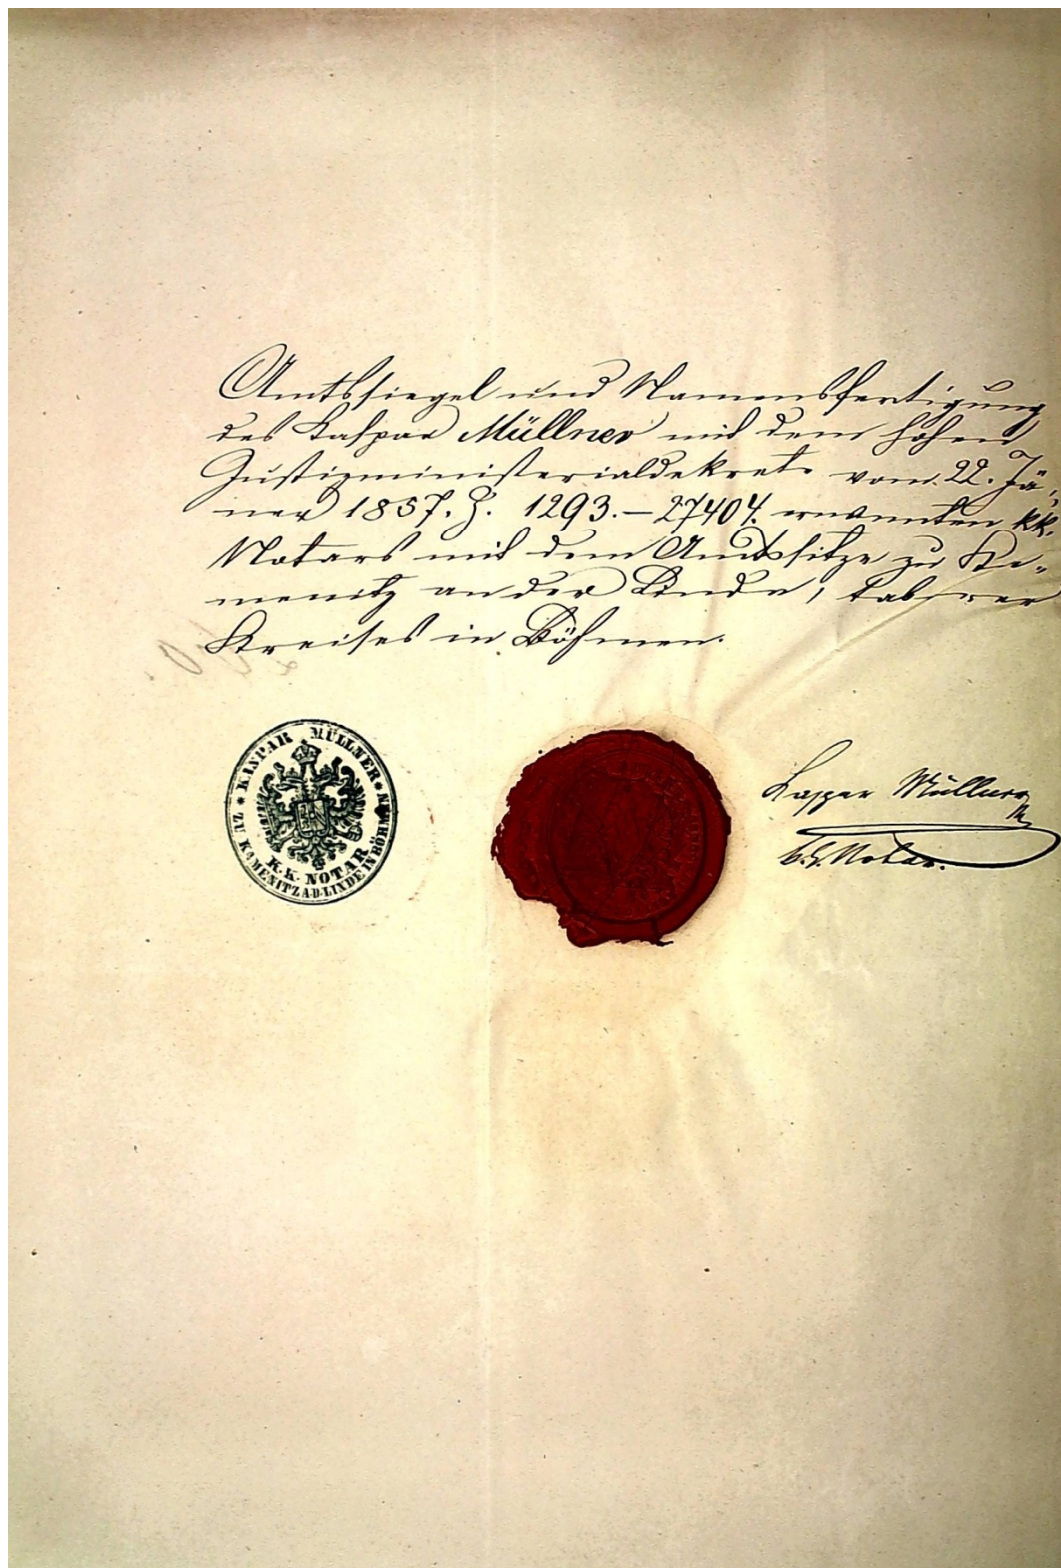 Amtssiegel und Namensfertigung
des Kaspar Müllner mit dem hohen
Justizministerialdekrete vom 22. Jä-
ner 1857. Z. 1293.–27404. ernannten kk.
Notars mit dem Amtssitze zu Ka-
menitz an der Linde, Taborer
Kreises in Böhmen.
KASPAR MÜLLNER
K.K. NOTAR
ZU KAMENITZ A.D. LINDE IN BÖHMEN
Kaspar Müllner
k.k. Notar.